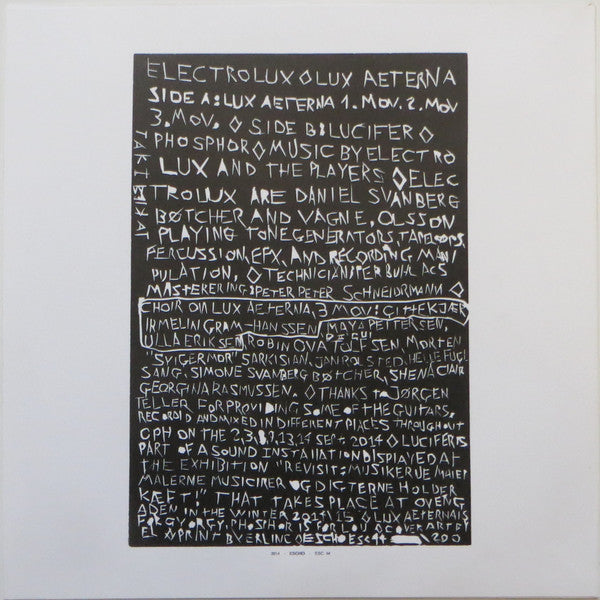 ELECTROLUX◊LUX AETERNA
SIDE A: LUX AETERNA 1. MOV. 2. MOV
3. MOV. ◊ SIDE B: LUCIFER ◊
PHOSPHOR ◊ MUSIC BY ELECTRO
LUX AND THE PLAYERS ◊ELEC
TROLUX ARE DANIEL SVANBERG
BØTCHER AND VAGNE, OLSSON
PLAYING TONEGENERATORS, TAPELOOPS,
PERCUSSION, EFX, AND RECORDING MANI
PULATION, ◊ TECHNICIAN: PER BUHL ACS
MASTERERING: PETER PETER SCHNEIDRMANN ◊
CHOIR ON LUX AETERNA, 3 MOV: GITTE KJÆR
IRMELIN GRAM-HANSSEN, MAYA PETTERSEN,
ULLA ERIKSEN, ROBIN SEN, MORTEN
"SVIGERMOR" SARKISIAN, JAN ROLSTED, HELLE FUGL
SANG, SIMONE SVANBERG BØTCHER, SHENA CLAIR
GEORGINA RASMUSSEN. ◊ THANKS to JØRGEN
TELLER FOR PROVIDING SOME OF THE GUITARS.
RECORDID AND MIXED IN DIFFERENT PLACES THROUGHOUT
CPH ON THE 2, 3, 8, 9, 13, 14 SEPt 2014 ◊ LUCIFER IS
PART OF A SOUND INSTALLATION DISPLAYED AT
THE EXHIBITION "REVISIT: MUSIKERNE MALER
MALERNE MUSICIRER OG DIGTERNE HOLDER
KÆFT!" THAT TAKES PLACE AT OVENG
ADEN IN THE WINTER 2014/15 ◊ LUX AETERNA IS
FOR GYORGY, PHOSPHOR IS FOR LOU ◊ COVER ART BY
PRINT BY ERLING ESC44 200
TAKT
2014 - ESCHO - ESC 44